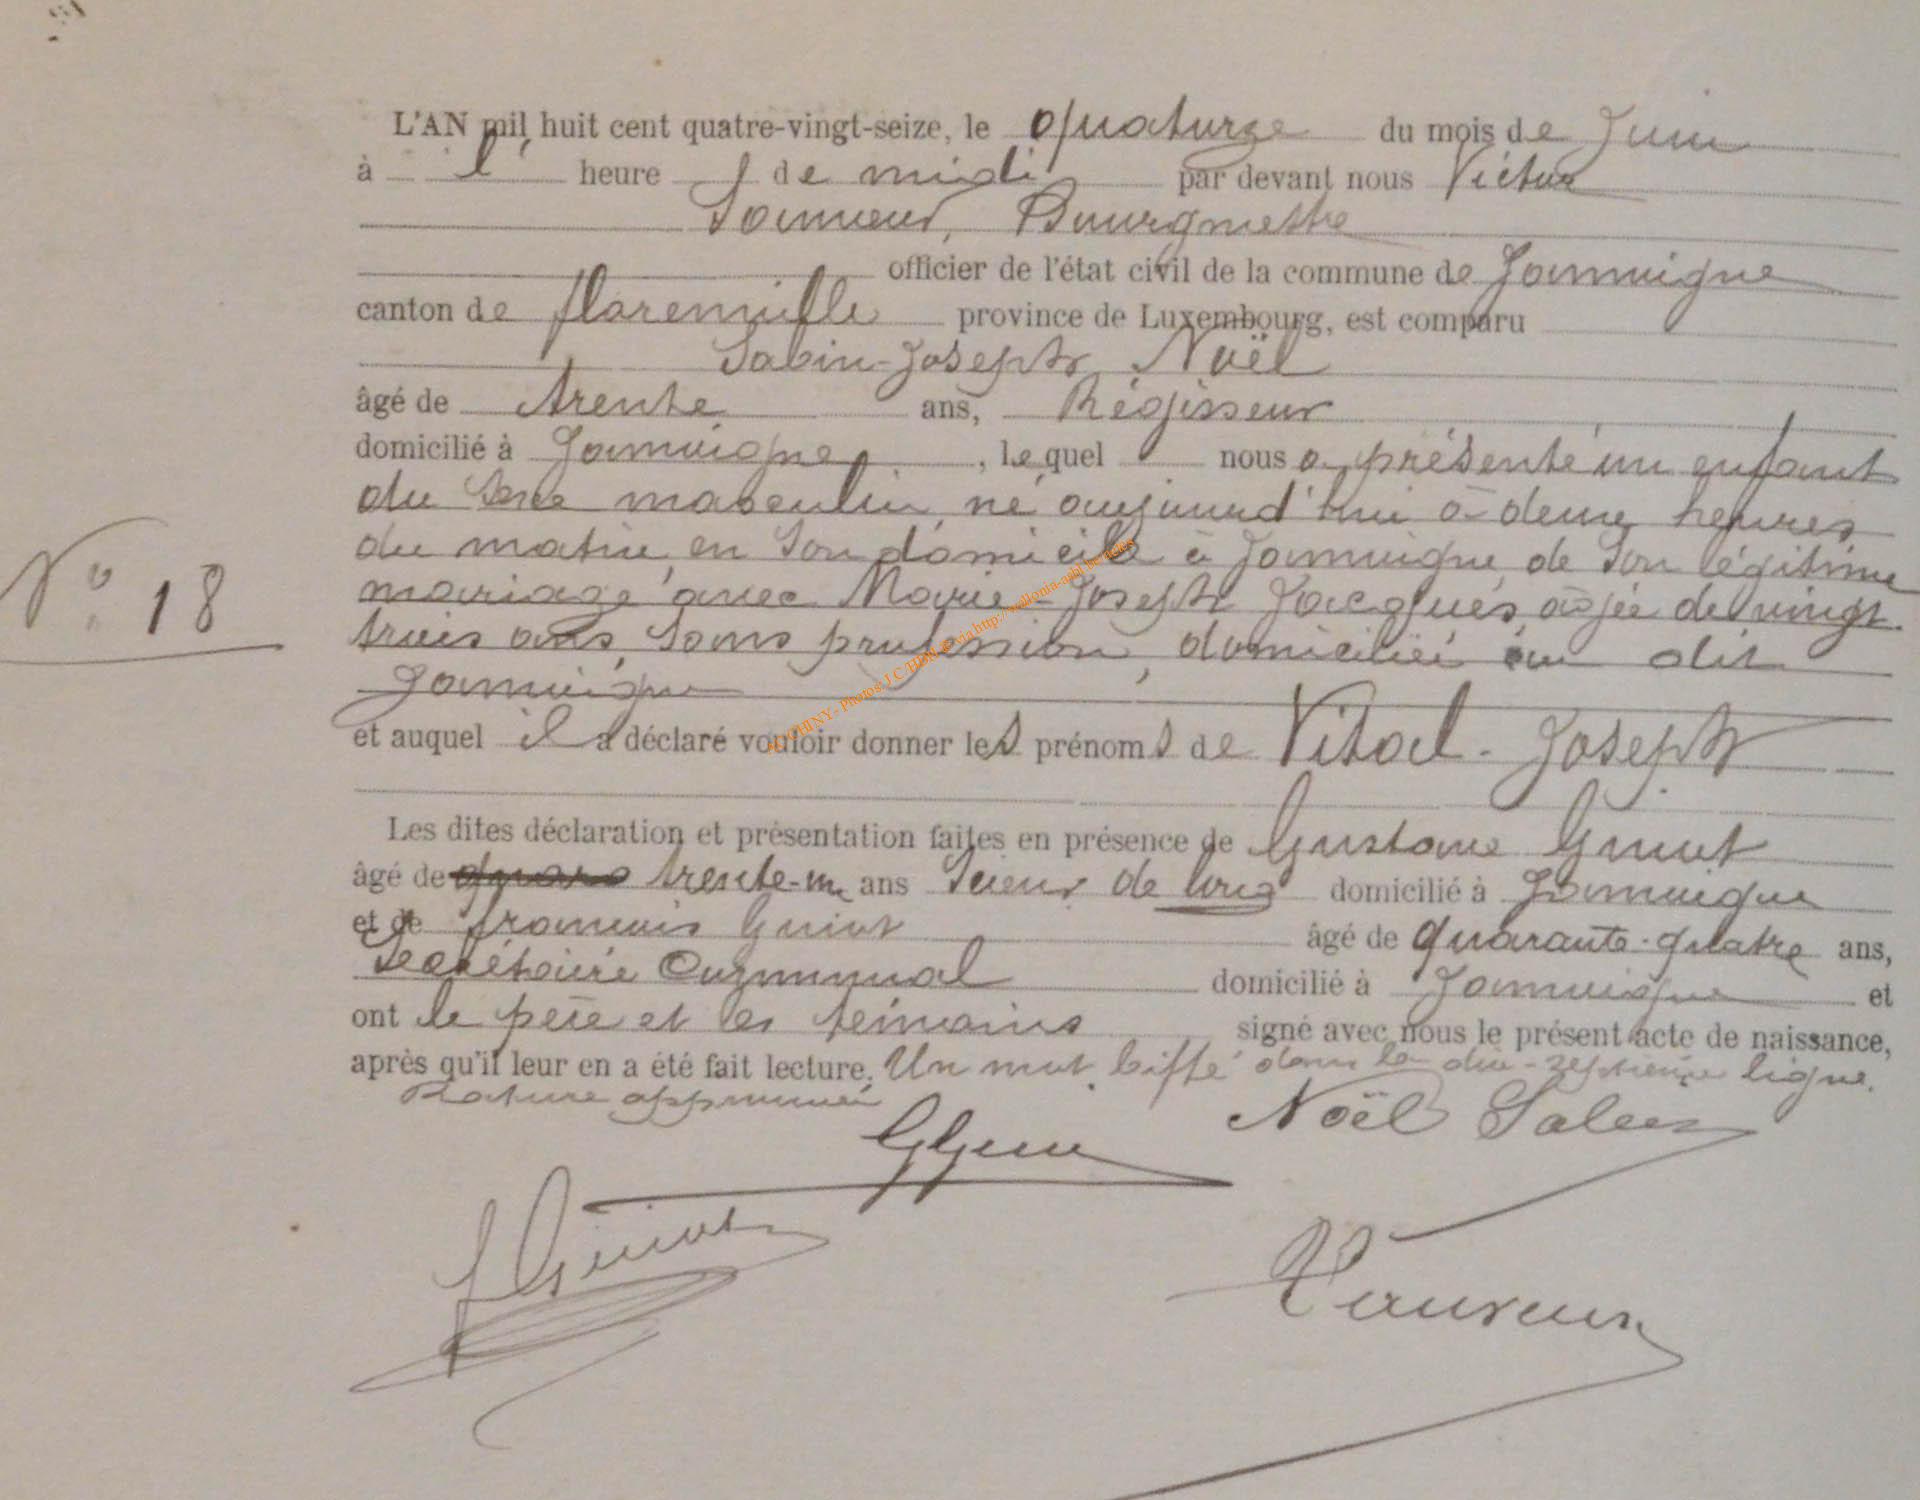 L'AN mil huit cent quatre-vingt-seize, le quatorze du mois de Juin
à l' heure de midi par devant nous Victor
Bourgmestre
officier de l'état civil de la commune de Jamoigne
canton de florenville province de Luxembourg, est comparu
Sabin-Joseph Noël
âgé de trente ans, Régisseur
domicilié à Jamoigne, lequel nous a présenté un enfant
du sexe masculin, né aujourd'hui à deux heures
N° 18
du matin, en son domicile à Jamoigne, de son légitime
mariage avec Marie-Joseph Jacques, âgée de vingt-
trois ans, sans profession, domiciliée au dit
Jamoigne
et auquel il a déclaré vouloir donner les prénoms de Vital-Joseph
Les dites déclaration et présentation faites en présence de Gustave Guiot
âgé de quara trente-un ans Scieur de long domicilié à Jamoigne
et de françois Guiot âgé de quarante-quatre ans,
Secrétaire Communal domicilié à Jamoigne et
ont le père et les témoins signé avec nous le présent acte de naissance,
après qu'il leur en a été fait lecture. Un mot biffé dans la dix-septième ligne.
Rature approuvée
Noël Sabin
GGuiot
f Guiot